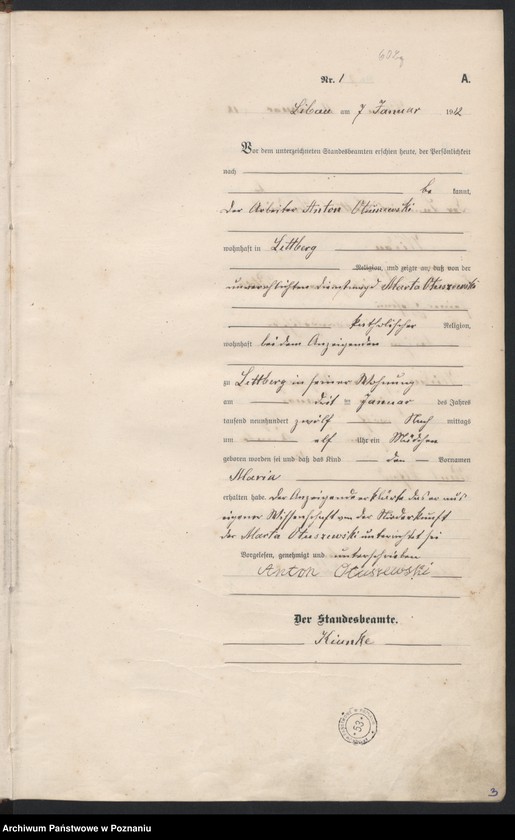 Nr. 1 A.
Libau am 7 Januar 1912
Vor dem unterzeichneten Standesbeamten erschien heute, der Persönlichkeit
nach
be kannt,
der Arbeiter Anton Otuszewski
wohnhaft in Lettberg
Religion, und zeigte an, daß von der
unverehelichten Dienstmagd Marta Otuszewski
katholischer Religion,
wohnhaft bei dem Anzeigenden
zu Lettberg in seiner Wohnung
am drit = Januar des Jahres
tausend neunhundert zwölf Nach mittags
um elf Uhr ein Mädchen
geboren worden sei und daß das Kind den Vornamen
Maria
erhalten habe. Der Anzeigende erklärte das er aus
eigener Wissenschaft von der Niederkunft
der Marta Otuszewski unterrichtet sei
Vorgelesen, genehmigt und unterschrieben
Anton Otuszewski
Der Standesbeamte.
53
3
Archiwum Państwowe w Poznaniu